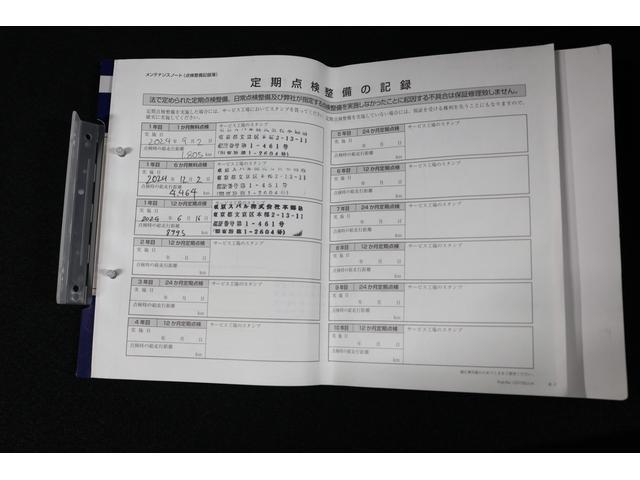 メンテナンスノート（点検整備記録簿）
定期点検整備の記録
法で定められた定期点検整備、日常点検整備及び弊社が指定する点検整備を実施しなかったことに起因する不具合は保証修理致しません。
定期点検整備を実施した場合には、サービス工場においてスタンプを貰ってください。
確実に実施してください。
定期点検整備を実施していない場合は、保証を受ける権利を失うことにもなりますので、
1年目 1か月無料点検 サービス工場のスタンプ
実施日
2024年9月2日
点検時の総走行距離
1,805 km
東京都文京区本郷2-13-11
認証番号第1-461号
1年目 6か月無料点検 サービス工場のスタンプ
実施日
2024年12月2日
点検時の総走行距離
4,464 km
東京都文京区本郷2-13-11
1年目 12か月定期点検
実施日
年6月16日
点検時の総走行距離
8795 km
東京スバル株式会社本郷店
東京都文京区本郷2-13-11
認証番号第1-461号
2年目 12か月定期点検 サービス工場のスタンプ
実施日
年 月 日
点検時の総走行距離
km
3年目 24か月定期点検 サービス工場のスタンプ
実施日
年 月 日
点検時の総走行距離
km
4年目 12か月定期点検 サービス工場のスタンプ
実施日
年 月 日
点検時の総走行距離
km
5年目 24か月定期点検 サービス工場のスタンプ
実施日
年 月 日
点検時の総走行距離
km
6年目 12か月定期点検 サービス工場のスタンプ
実施日
年 月 日
点検時の総走行距離
km
7年目 24か月定期点検 サービス工場のスタンプ
実施日
年 月 日
点検時の総走行距離
km
8年目 12か月定期点検 サービス工場のスタンプ
実施日
年 月 日
点検時の総走行距離
km
9年目 24か月定期点検 サービス工場のスタンプ
実施日
年 月 日
点検時の総走行距離
km
10年目 12か月定期点検 サービス工場のスタンプ
実施日
年 月 日
点検時の総走行距離
km